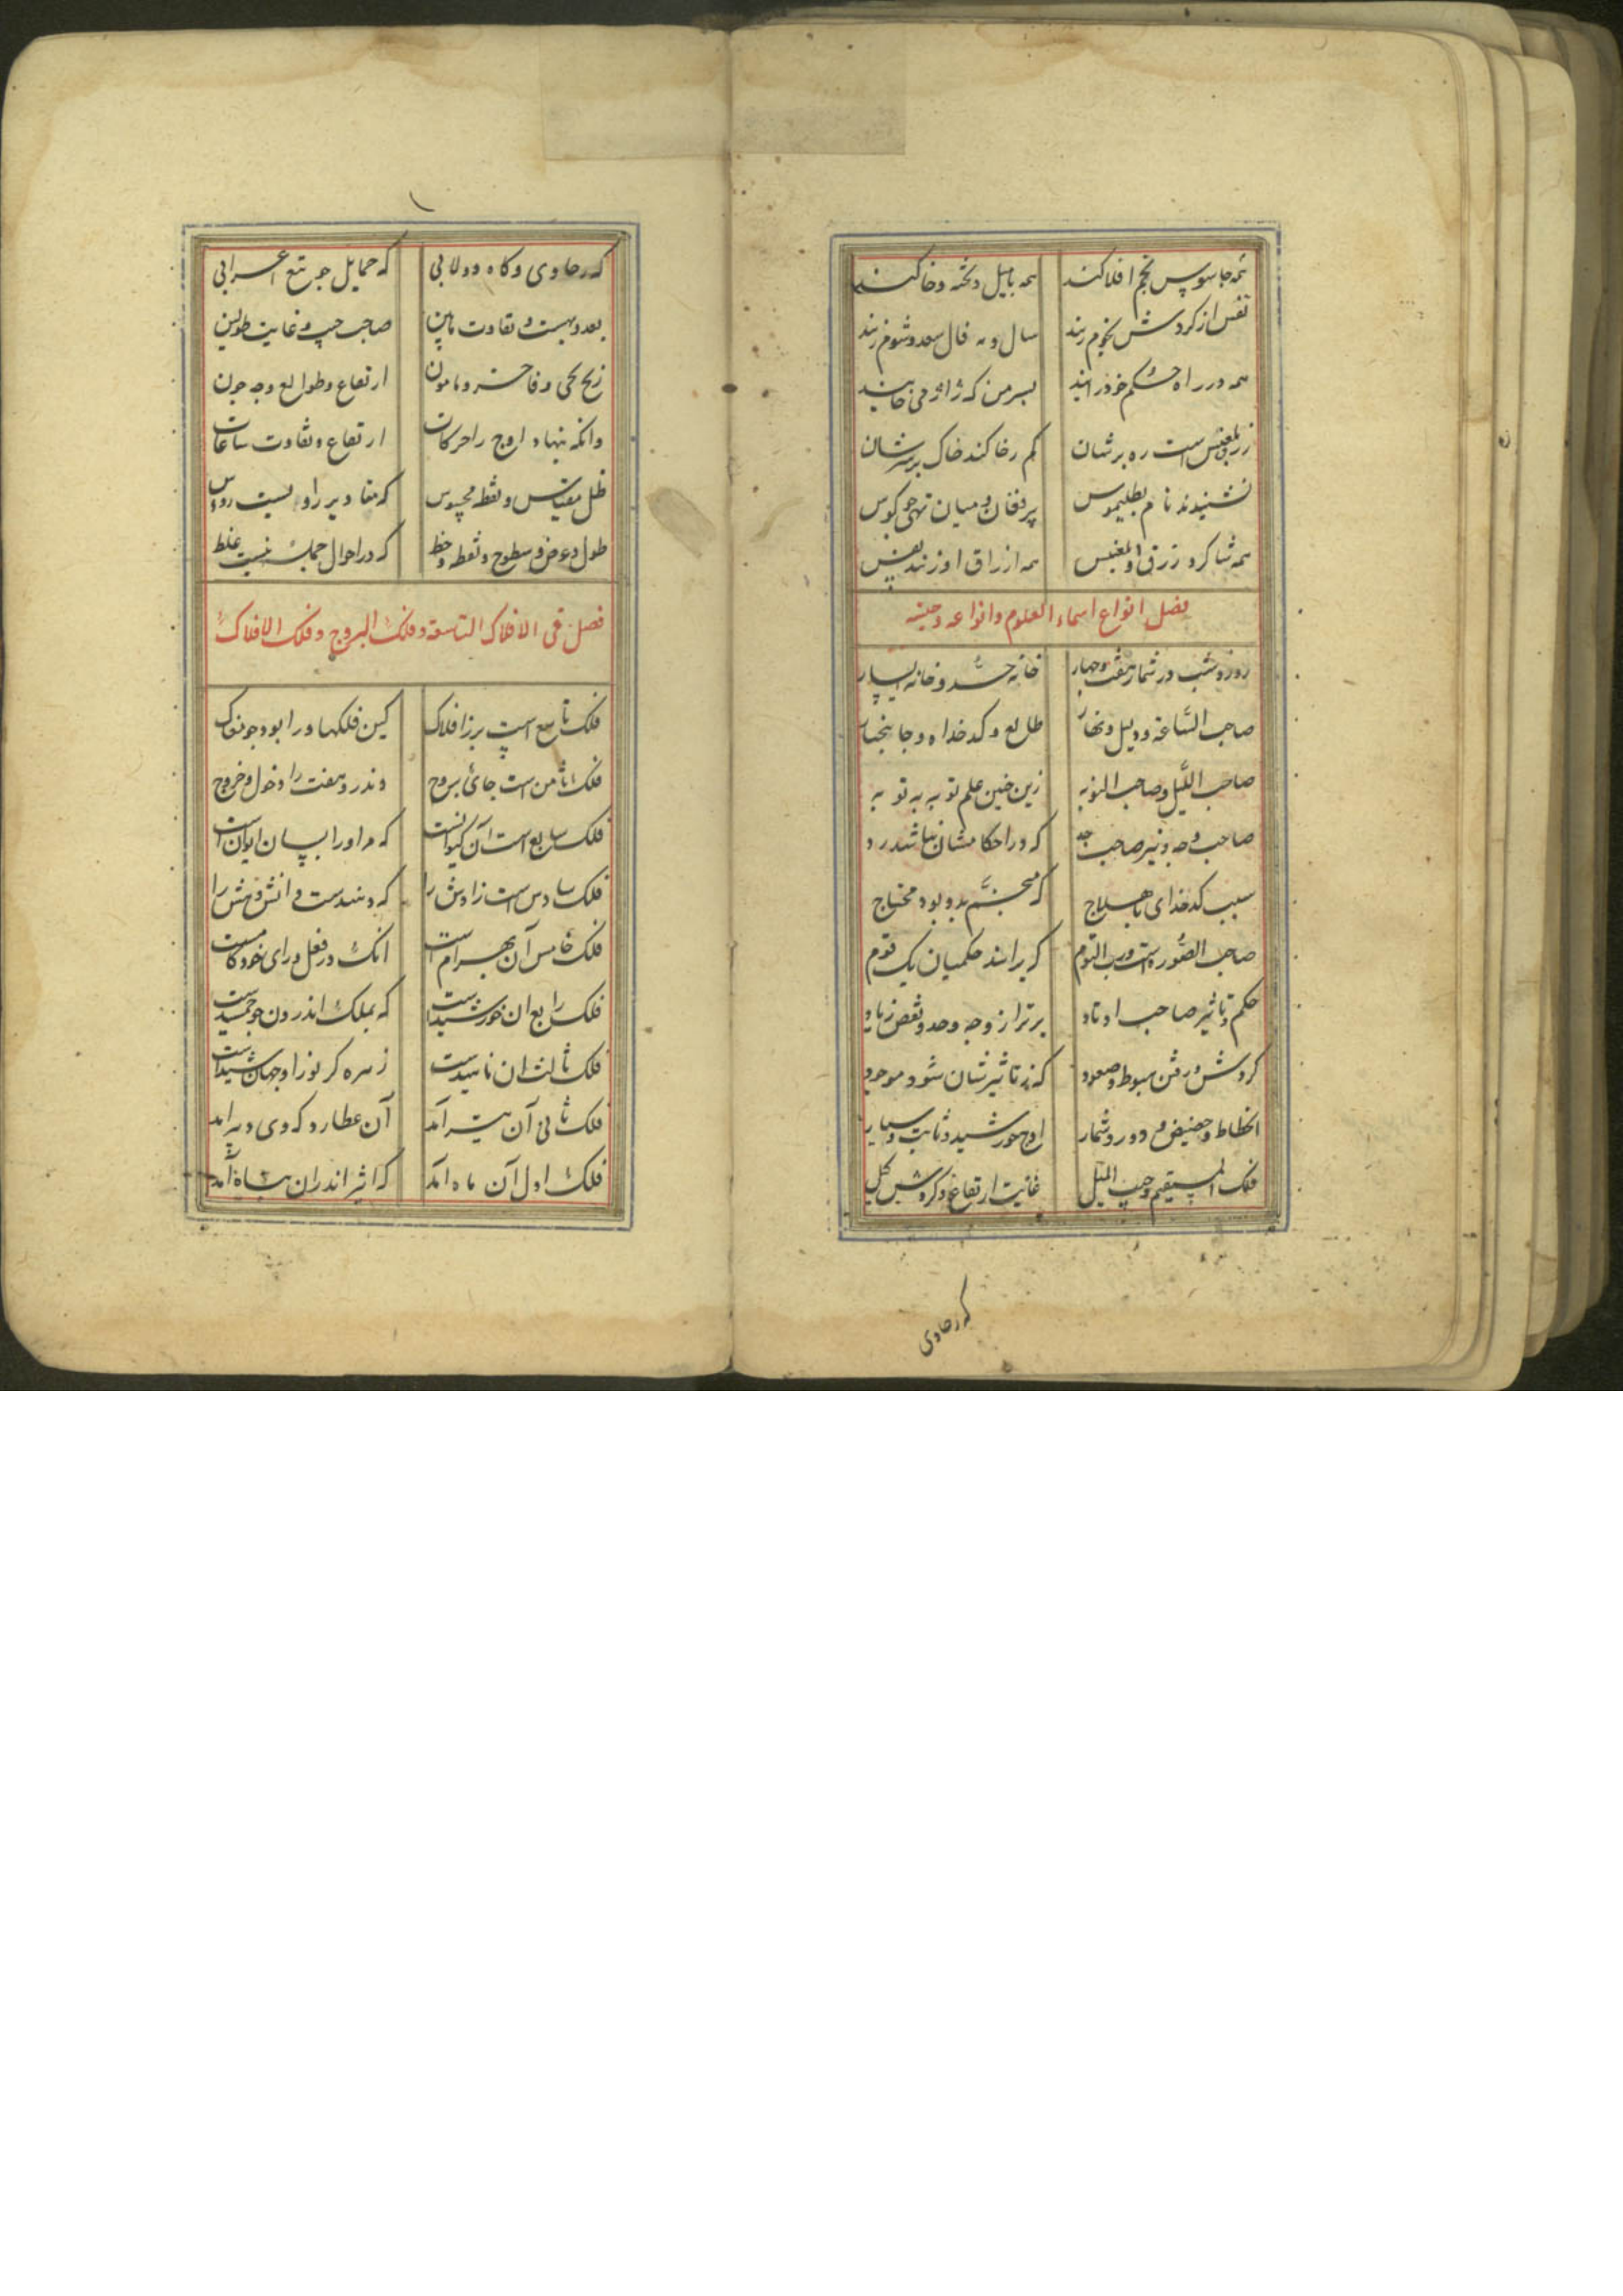 همه جاسوس نجم افلاکند همه با میل و تخته و خاکند
نفس از گردش نجوم زنند سال و مه فال سعد و شوم زنند
همه در راه حکم خود رانند بسر من که ژاژ می خایند
زرق و تلبیس است ره برشان کم رخا کند خاک بر سرشان
نشنیدند نام بطلیموس پر فغان و میان تهی چو کوس
همه شاکرد زرق همه از راق اوزند نفس
فصل انواع اسماء العلوم وانواعه وحیته
روز و شب در شمار هفت و چهار خانه خسد و خانه بسیار
صاحب السّاعة و دلیل و نهار طالع و کدخداه و جا بنجتار
صاحب اللّیل وصاحب النوبه زین خنین علم توبه به توبه
صاحب وجه و نیز صاحب حد که در احکامشان نباشد رد
سبب کدخدای با هیلاج که منجّم بدو بود محتاج
صاحب الصّوره است ورب الیوم که برانند حکم میان یک قوم
حکم و تاثیر صاحب اوتاد برتر از وجه وحد و نقص زیاد
کردش و رفتن هبوط وصعود که ز تاثیرشان شود موجود
انحطاط و حضیض و دور و شمار اوج خورشید و ثابت و سیار
فلک المستقیم وجیب المیل غایت ارتفاع و کردش کیل
که رحاوی
که رحاوی و کاه دولابی که حمایل چو تیغ اعرابی
بعد و بهت و تفاوت مابین صاحب جیب و غایت طولین
زیج یحیی و فاخر و مامون ارتفاع و طوالع وجه جون
وانکه بنهاد اوج را حرکات ارتفاع و تفاوت ساعات
ظل مقیاس و نقطه محسوس که مقادیر راویست رووس
طول و عرض و سطوح و نقطه و خط که در احوال جمله نیست غلط
فصل فی الافلاک التاسعة وفلک البروج وفلک الافلاک
فلک تاسع است برز افلاک کین فلکها ورا بود چو مغاک
فلک ثامن است جائ بروج وندرو هفت را دخول و خروج
فلک سابع است آن کیوانست که مر اورا بسان ایوان است
فلک سادس است زاوش را که دهندست دانش و هش را
فلک خامس آن بهرام است انک در فعل و رای خودکامست
فلک رابع ان خورشیدست که بملک اندرون چو جمشیدست
فلک ثالث ان ناهیدست زهره کز نور او جهان شیداست
فلک ثانی آن تیر آمد آن عطارد که وی دبیر امد
فلک اول آن ماه امد که اثیر اندران تباه آمد